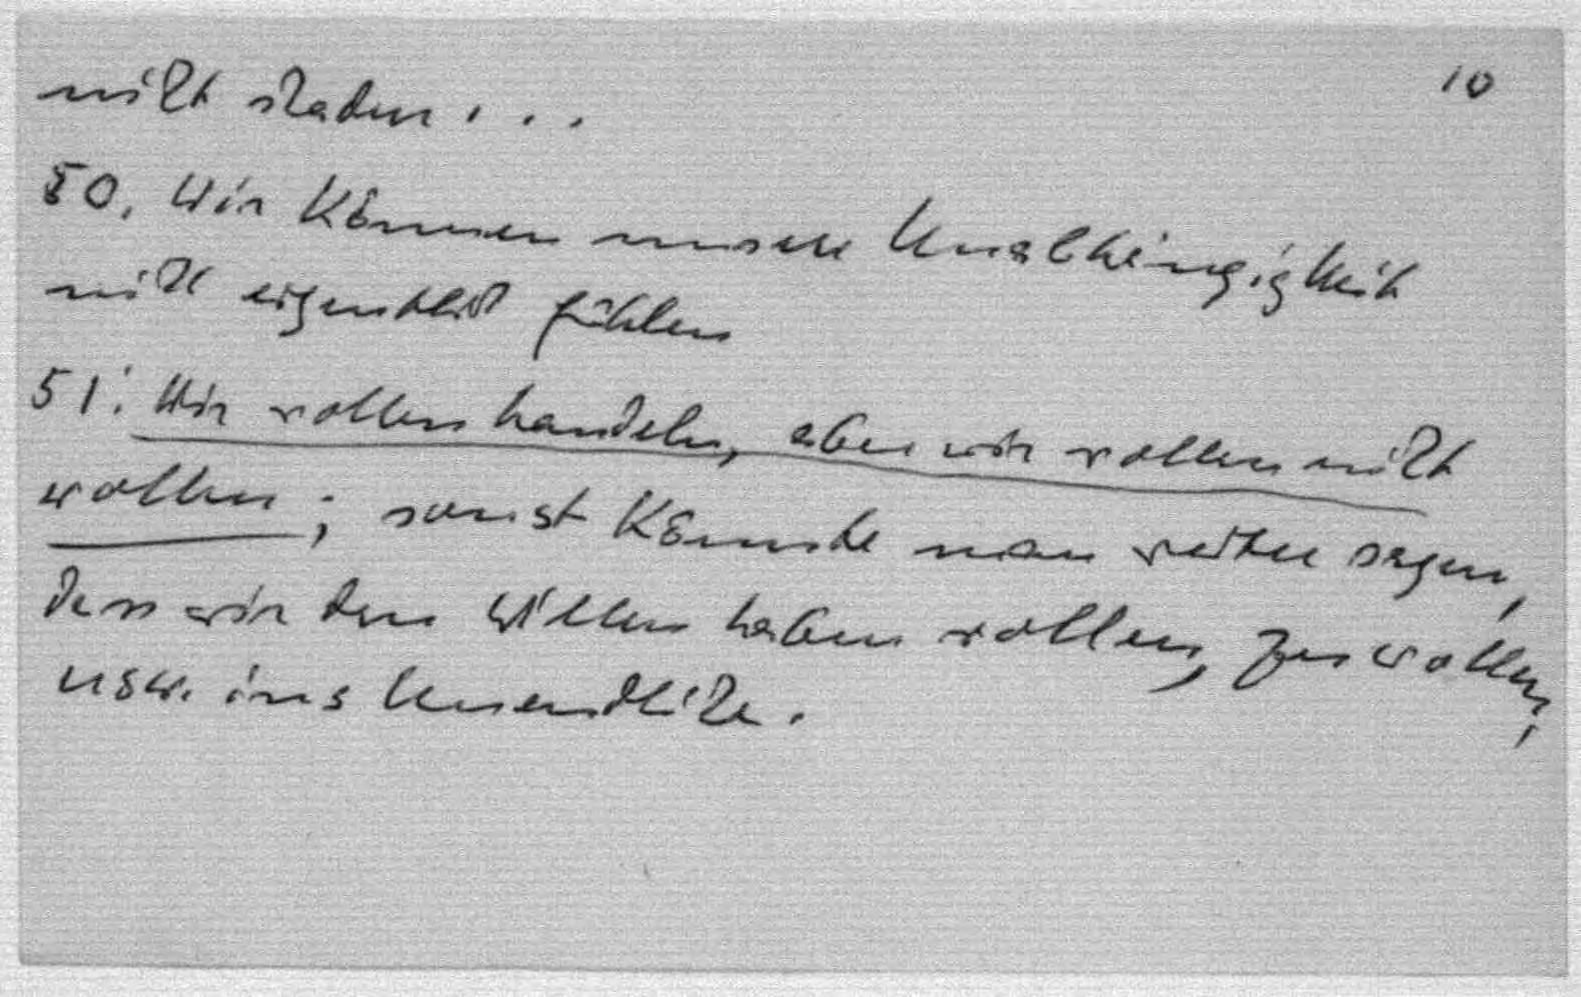 10
nicht schaden . . .
50. Wir können unsere Unabhängigkeit
nicht eigentlich fühlen
51. Wir wollen handeln, aber wir wollen nicht
wollen; sonst könnte man weiter sagen,
dass wir den Willen haben wollen, zu wollen,
usw. ins Unendliche.